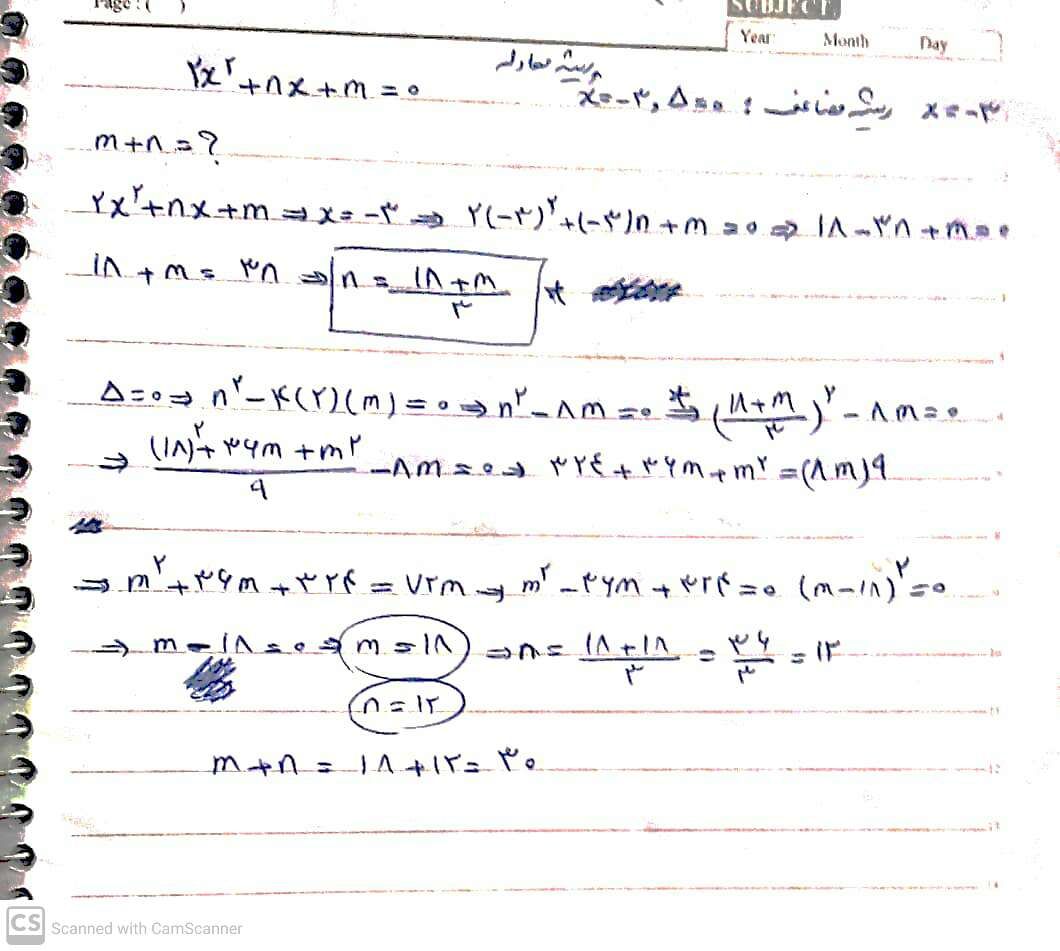 Page : ( )
SUBJECT:
Year Month Day
۲x² + nx + m = ۰
ریشه معادله
x = -۳ , Δ = ۰ : ریشه مضاعف x = -۳
m + n = ?
۲x² + nx + m ⇒ x = -۳ ⇒ ۲(-۳)² + (-۳)n + m = ۰ ⇒ ۱۸ - ۳n + m = ۰
۱۸ + m = ۳n ⇒ n = (۱۸ + m)/۳ *
Δ = ۰ ⇒ n² - ۴(۲)(m) = ۰ ⇒ n² - ۸m = ۰ *⇒ ((۱۸ + m)/۳)² - ۸m = ۰
⇒ ((۱۸)² + ۳۶m + m²)/۹ - ۸m = ۰ ⇒ ۳۲۴ + ۳۶m + m² = (۸m)۹
⇒ m² + ۳۶m + ۳۲۴ = ۷۲m ⇒ m² - ۳۶m + ۳۲۴ = ۰ (m - ۱۸)² = ۰
⇒ m - ۱۸ = ۰ ⇒ m = ۱۸ ⇒ n = (۱۸ + ۱۸)/۳ = ۳۶/۳ = ۱۲
n = ۱۲
m + n = ۱۸ + ۱۲ = ۳۰
CS Scanned with CamScanner